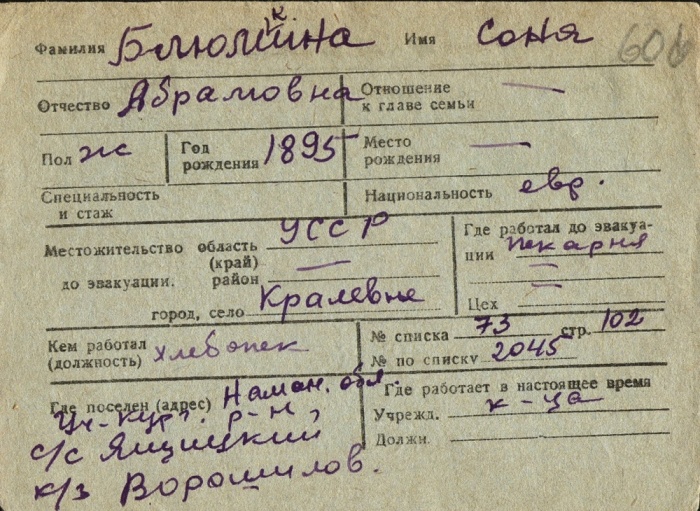 Фамилия Блюмкина Имя Соня 606
Отчество Абрамовна Отношение к главе семьи —
Пол ж Год рождения 1895 Место рождения —
Специальность и стаж Национальность евр.
Местожительство до эвакуации. область (край) УССР
район —
город, село Кралевце
Где работал до эвакуации пекарня
Цех
Кем работал (должность) хлебопек
№ списка 73 стр. 102
№ по списку 2045
Где поселен (адрес) Наман. обл.
Уч-Кург. р-н,
с/с Яициский
к/з Ворошилов.
Где работает в настоящее время
Учрежд. к-ца
Должн.